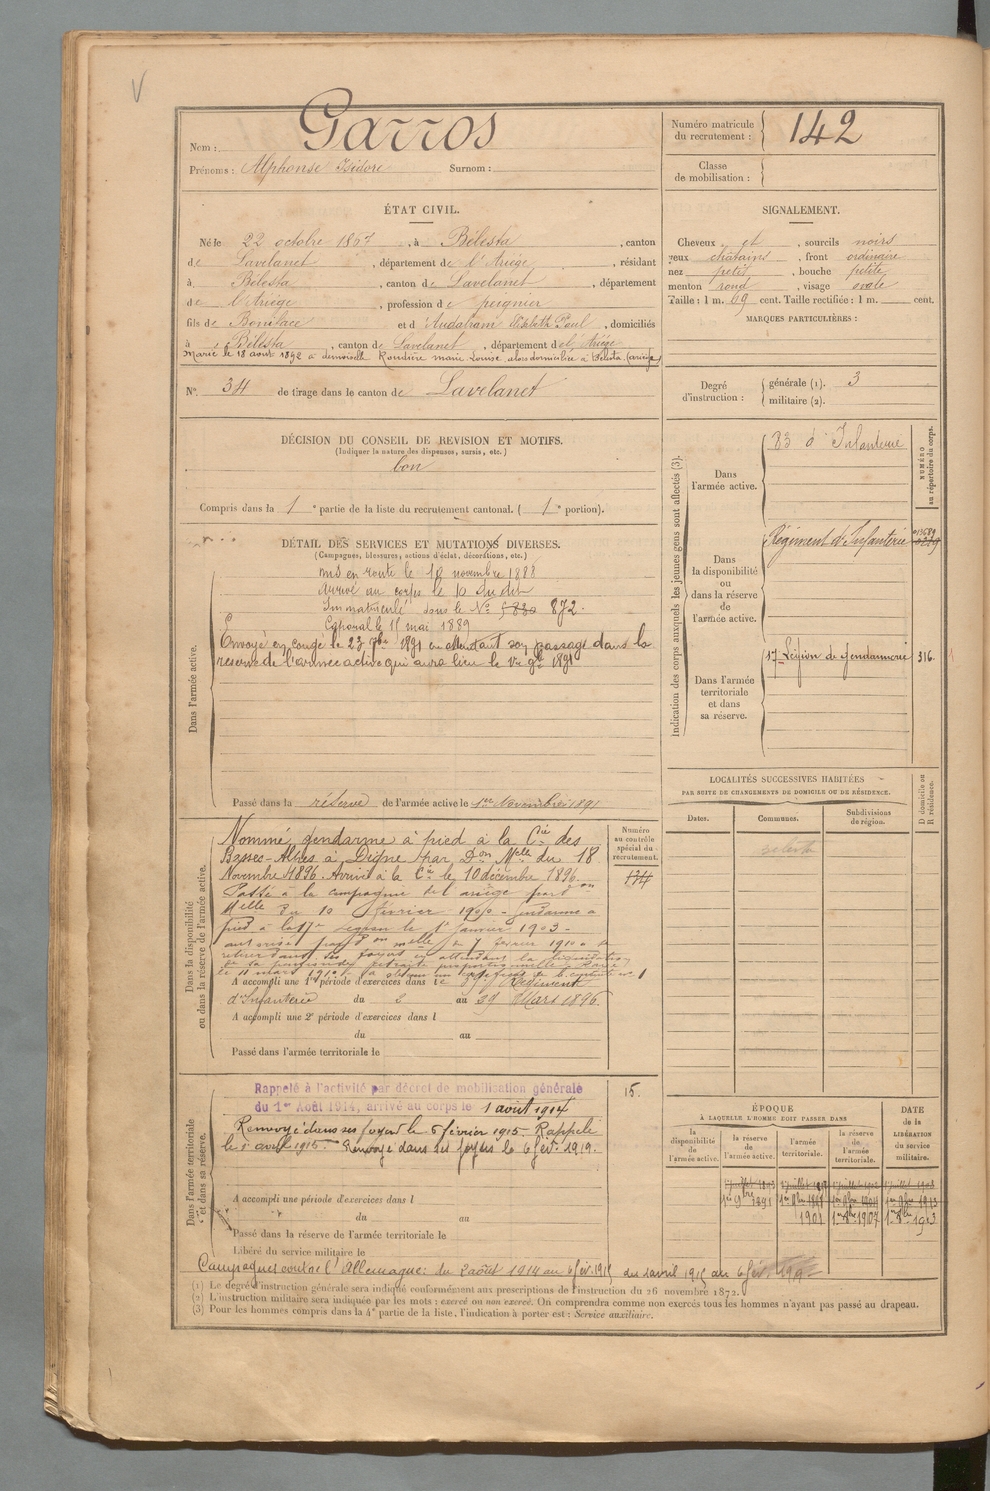 Nom : Garros
Prénoms : Alphonse Isidore Surnom :
Numéro matricule du recrutement : 142
Classe de mobilisation :
ÉTAT CIVIL.
Né le 22 octobre 1867, à Bélesta, canton
de Lavelanet, département de l'Ariège, résidant
à Bélesta, canton de Lavelanet, département
de l'Ariège, profession de peignier
fils de Boniface et d'Audabram Paul, domiciliés
à Bélesta, canton de Lavelanet, département de l'Ariège
Marié le 18 aout 1892 à demoiselle Roudière marie Louise alors domiciliée à Bélesta (ariège)
N° 34 de tirage dans le canton de Lavelanet
SIGNALEMENT.
Cheveux et, sourcils noirs
yeux châtains, front ordinaire
nez petit, bouche petite
menton rond, visage ovale
Taille : 1 m. 69 cent. Taille rectifiée : 1 m. cent.
MARQUES PARTICULIÈRES :
Degré d'instruction : générale (1). 3
militaire (2).
DÉCISION DU CONSEIL DE REVISION ET MOTIFS.
(Indiquer la nature des dispenses, sursis, etc.)
bon
Compris dans la 1e partie de la liste du recrutement cantonal. (1e portion).
DÉTAIL DES SERVICES ET MUTATIONS DIVERSES.
(Campagnes, blessures, actions d'éclat, décorations, etc.)
Dans l'armée active.
mis en route le 10 novembre 1888
Arrivé au corps le 10 du dit
Immatriculé sous le N° 872.
Caporal le 11 mai 1889
Envoyé en congé le 23 7bre 1891 en attendant son passage dans la
réserve de l'armée active qui aura lieu le 1er 9bre 1891
Passé dans la réserve de l'armée active le 1er Novembre 1891
Indication des corps auxquels les jeunes gens sont affectés (3).
NUMÉRO au répertoire du corps.
Dans l'armée active.
83e d'Infanterie
Dans la disponibilité ou dans la réserve de l'armée active.
Régiment d'Infanterie
Dans l'armée territoriale et dans sa réserve.
17e Légion de Gendarmerie 316.
LOCALITÉS SUCCESSIVES HABITÉES
PAR SUITE DE CHANGEMENTS DE DOMICILE OU DE RÉSIDENCE.
D domicile ou R résidence.
Dates. Communes. Subdivisions de région.
Dans la disponibilité ou dans la réserve de l'armée active.
Numéro au contrôle spécial du recrutement.
Nommé gendarme à pied à la Cie des
Basses-Alpes à Digne par Don Mlle du 18
Novembre 1896. Arrivé à la Cie le 10 décembre 1896.
Passé à la compagnie de l'ariège par don
Mlle du 10 février 1900 - gendarme à
pied à la 17e légion le 1er Janvier 1903 -
autorisé par don mlle du 7 février 1910 à se
retirer dans ses foyers en attendant la liquidation
de sa pension de retraite proportionnelle. Rayé
A accompli une 1re période d'exercices dans le Régiment
d'Infanterie du 2 au 29 Mars 1896.
A accompli une 2e période d'exercices dans l
du au
Passé dans l'armée territoriale le
Dans l'armée territoriale et dans sa réserve.
Rappelé à l'activité par décret de mobilisation générale
du 1er Août 1914, arrivé au corps le 1 août 1914
15.
Renvoyé dans ses foyers le 6 février 1915. Rappelé
le 1 avril 1915. Renvoyé dans ses foyers le 6 févr. 1919.
A accompli une période d'exercices dans l
du au
Passé dans la réserve de l'armée territoriale le
Libéré du service militaire le
Campagnes contre l'Allemagne : du 2 aout 1914 au 6 fév. 1915 du 1 avril 1915 au 6 fév. 1919
ÉPOQUE
À LAQUELLE L'HOMME DOIT PASSER DANS
DATE de la LIBÉRATION du service militaire.
la disponibilité de l'armée active. la réserve de l'armée active. l'armée territoriale. la réserve de l'armée territoriale.
1er 9bre 1891
1901 1er 8bre 1907 1er 8bre 1913
(1) Le degré d'instruction générale sera indiqué conformément aux prescriptions de l'instruction du 26 novembre 1872.
(2) L'instruction militaire sera indiquée par les mots : exercé ou non exercé. On comprendra comme non exercés tous les hommes n'ayant pas passé au drapeau.
(3) Pour les hommes compris dans la 4e partie de la liste, l'indication à porter est : Service auxiliaire.